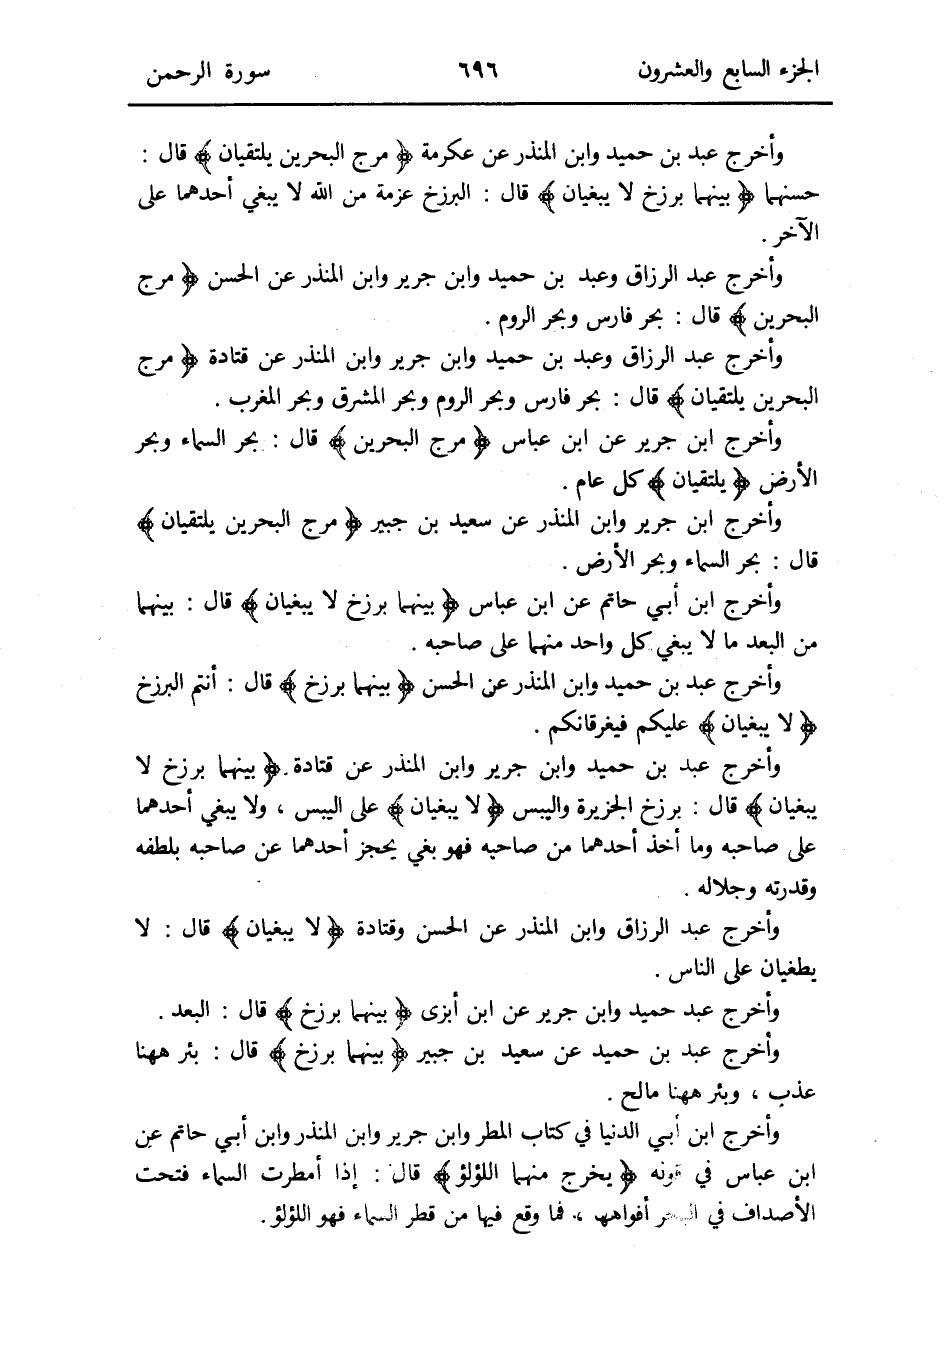 الجزء السابع والعشرون ٦٩٦ سورة الرحمن
وأخرج عبد بن حميد وابن المنذر عن عكرمة ﴿ مرج البحرين يلتقيان ﴾ قال :
حسنهما ﴿ بينهما برزخ لا يبغيان ﴾ قال : البرزخ عزمة من الله لا يبغي أحدهما على
الآخر .
وأخرج عبد الرزاق وعبد بن حميد وابن جرير وابن المنذر عن الحسن ﴿ مرج
البحرين ﴾ قال : بحر فارس وبحر الروم .
وأخرج عبد الرزاق وعبد بن حميد وابن جرير وابن المنذر عن قتادة ﴿ مرج
البحرين يلتقيان ﴾ قال : بحر فارس وبحر الروم وبحر المشرق وبحر المغرب .
وأخرج ابن جرير عن ابن عباس ﴿ مرج البحرين ﴾ قال : بحر السماء وبحر
الأرض ﴿ يلتقيان ﴾ كل عام .
وأخرج ابن جرير وابن المنذر عن سعيد بن جبير ﴿ مرج البحرين يلتقيان ﴾
قال : بحر السماء وبحر الأرض .
وأخرج ابن أبي حاتم عن ابن عباس ﴿ بينهما برزخ لا يبغيان ﴾ قال : بينهما
من البعد ما لا يبغي كل واحد منهما على صاحبه .
وأخرج عبد بن حميد وابن المنذر عن الحسن ﴿ بينهما برزخ ﴾ قال : أنتم البرزخ
﴿ لا يبغيان ﴾ عليكم فيغرقانكم .
وأخرج عبد بن حميد وابن جرير وابن المنذر عن قتادة ﴿ بينهما برزخ لا
يبغيان ﴾ قال : برزخ الجزيرة واليبس ﴿ لا يبغيان ﴾ على اليبس ، ولا يبغي أحدهما
على صاحبه وما أخذ أحدهما من صاحبه فهو بغي يحجز أحدهما عن صاحبه بلطفه
وقدرته وجلاله .
وأخرج عبد الرزاق وابن المنذر عن الحسن وقتادة ﴿ لا يبغيان ﴾ قال : لا
يطغيان على الناس .
وأخرج عبد حميد وابن جرير عن ابن أبزى ﴿ بينهما برزخ ﴾ قال : البعد .
وأخرج عبد بن حميد عن سعيد بن جبير ﴿ بينهما برزخ ﴾ قال : بئر ههنا
عذب ، وبئر ههنا مالح .
وأخرج ابن أبي الدنيا في كتاب المطر وابن جرير وابن المنذر وابن أبي حاتم عن
ابن عباس في قوله ﴿ يخرج منهما اللؤلؤ ﴾ قال : إذا أمطرت السماء فتحت
الأصداف في البحر أفواهها ، فما وقع فيها من قطر السماء فهو اللؤلؤ .